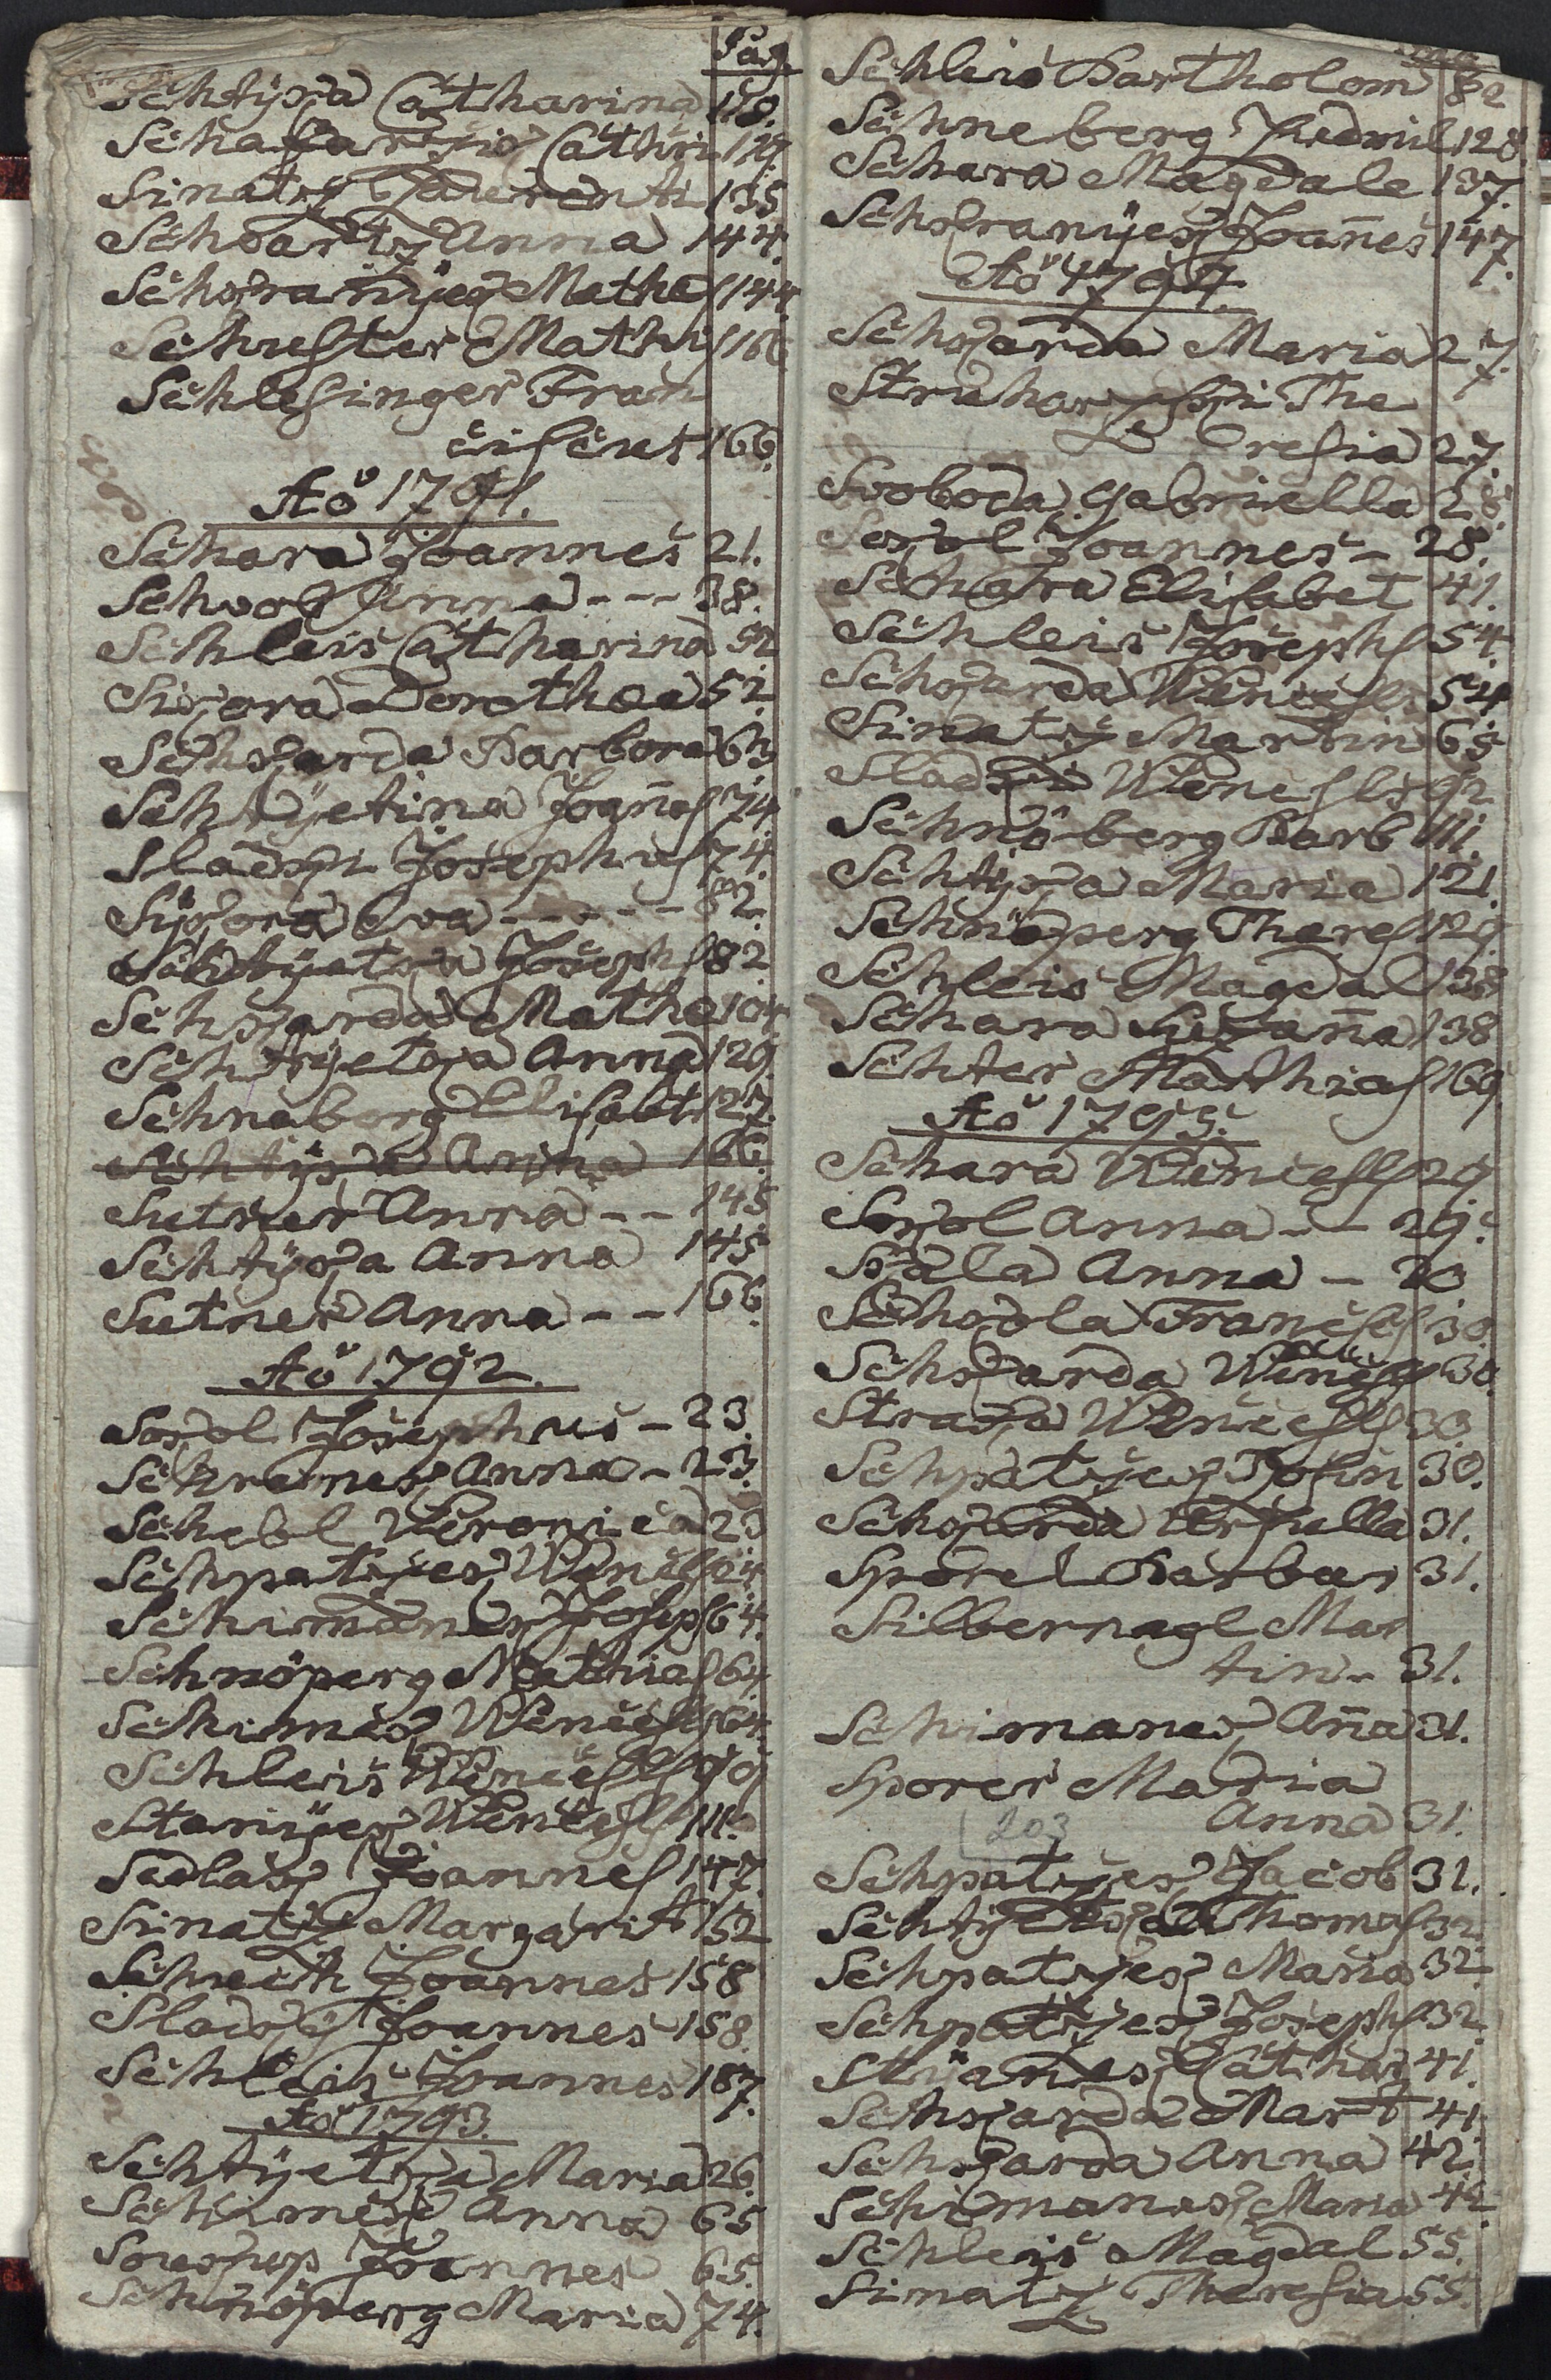 Pag.
Schtyka Catharina 118.
Schafarzik Cathri 127.
Sinatzy Laurenti 135
Schvartz Anna 144.
Schkranyek Mathes 144.
Schuster Mathis 166
Schlesinger Fran
ciscus 166.
Aõ 1791.
Schara Joannes 21.
Schvog Anna --- 38.
Schleis Catharina 52
Sikora Dorothea 52.
Schkarda Barbora 63
Schtyetina Joañes 74
Sladky Josephus 74.
Sykora Eva ----- 82.
Schtyetka Joseph 82
Schkarda Mathe 104.
Schtyetka Anna 129.
Schneberg Elisabet 127.
Schtyka Anna 166.
Sutner Anna -- 145
Schtyka Anna 145
Sutner Anna -- 166.
Aõ 1792.
Sokol Josephus - 23.
Schreiner Anna - 23.
Schebl Veronica 23
Schpatyek Wencesl 24
Schimanek Joseph 64.
Schnöperg Mathias 64
Schimek Wencesl 64.
Schleis Wencesl 90
Stanyek Wencesl 111.
Sedlak Joannes 147.
Sinatzy Margarit 152
Schuch Joannes 158
Sladky Joannes 158.
Schleis Joannes 187.
Aõ 1793.
Schtyetka Maria 26.
Schimek Anna 65
Souskup Joannes 65.
Schnöperg Maria 74.
Schleis Bartholom 82
Schneberg Ludmil 128.
Schara Magdale 137.
Schkranyek Joañes 147.
Aõ 1794.
Schkarda Maria 27.
Struhar The
resia 27.
Svoboda Gabriella 28.
Sokol Joannes - 28.
Schara Elisabet 41.
Schleis Josephs 54.
Schkarda Wencesl 54
Sinatzy Martin 65
Sladky Wencesls 92
Schnöberg Barb 111.
Schtyka Maria 121.
Schnöperg Theres 129
Schleis Magdal 138
Schara Susaña 138
Schter Matthias 169
Aõ 1795.
Schara Wencesls 29
Sokol Anna -- 29.
Skala Anna - 30
Schkola Francisc 30.
Schkarda Wencesl 30.
Straka Wencesls 30.
Schpatyek Rosin 30.
Schkarda Ursulla 31.
Sporel Barbar 31.
Silbernagl Mar
tin - 31.
Schimanek Aña 31.
Sporer Maria
Anna 31.
203
Schpatyek Jacob 31.
Schtyetka Thomas 32
Schpatyek Maria 32.
Schpatyek Josephs 32.
Cathar 41.
Schkarda Mart 41.
Schkarda Anna 42.
Schimanek Maria 42.
Schleis Magdal 55.
Sinatzy Theresia 55.